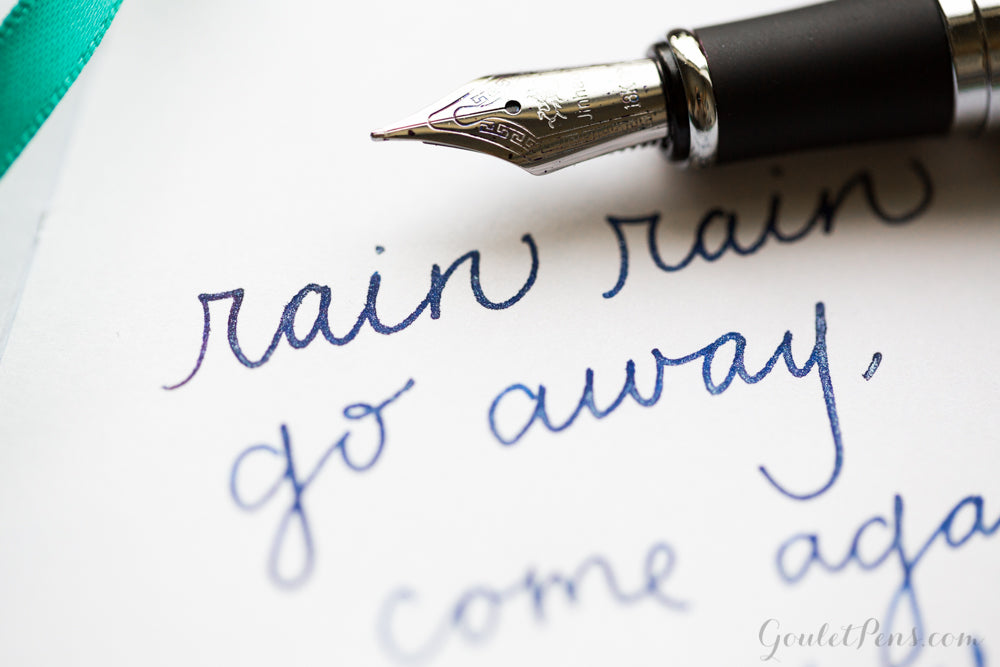 Jinhao
18K
rain rain
go away,
come aga
GouletPens.com